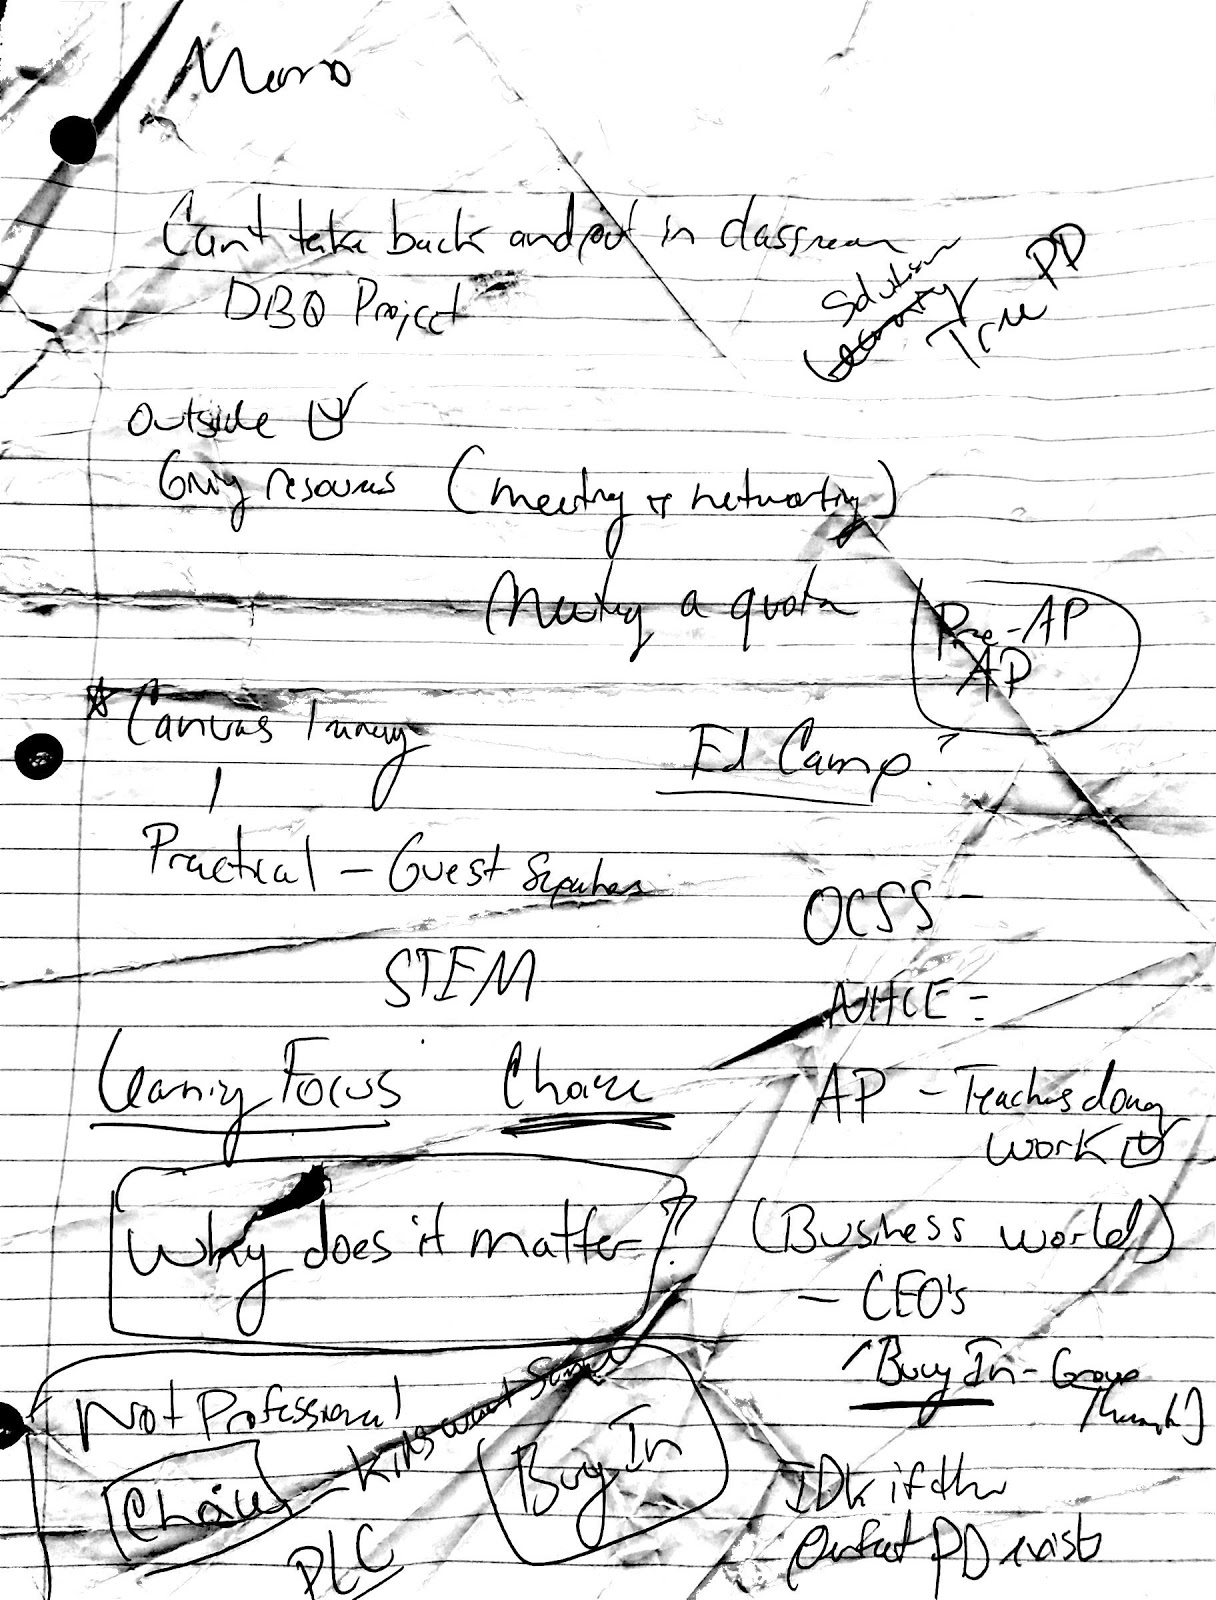 Can't take back and put in classroom
Solution
Tree PD
DBQ Project
Outside
Giving resources (meeting & networking)
Meeting a quota
Pre-AP
AP
Canvas Training
Ed Camp?
Practical - Guest Speakers
OCSS -
STEM
NHCE =
Learning Focus Choice
AP - Teachers doing
work
Why does it matter?
(Business world)
- CEO's
"Buy In - Group
Not Professional
Choice - Kids want same
Buy In
PLC
IDK if the
perfect PD exists